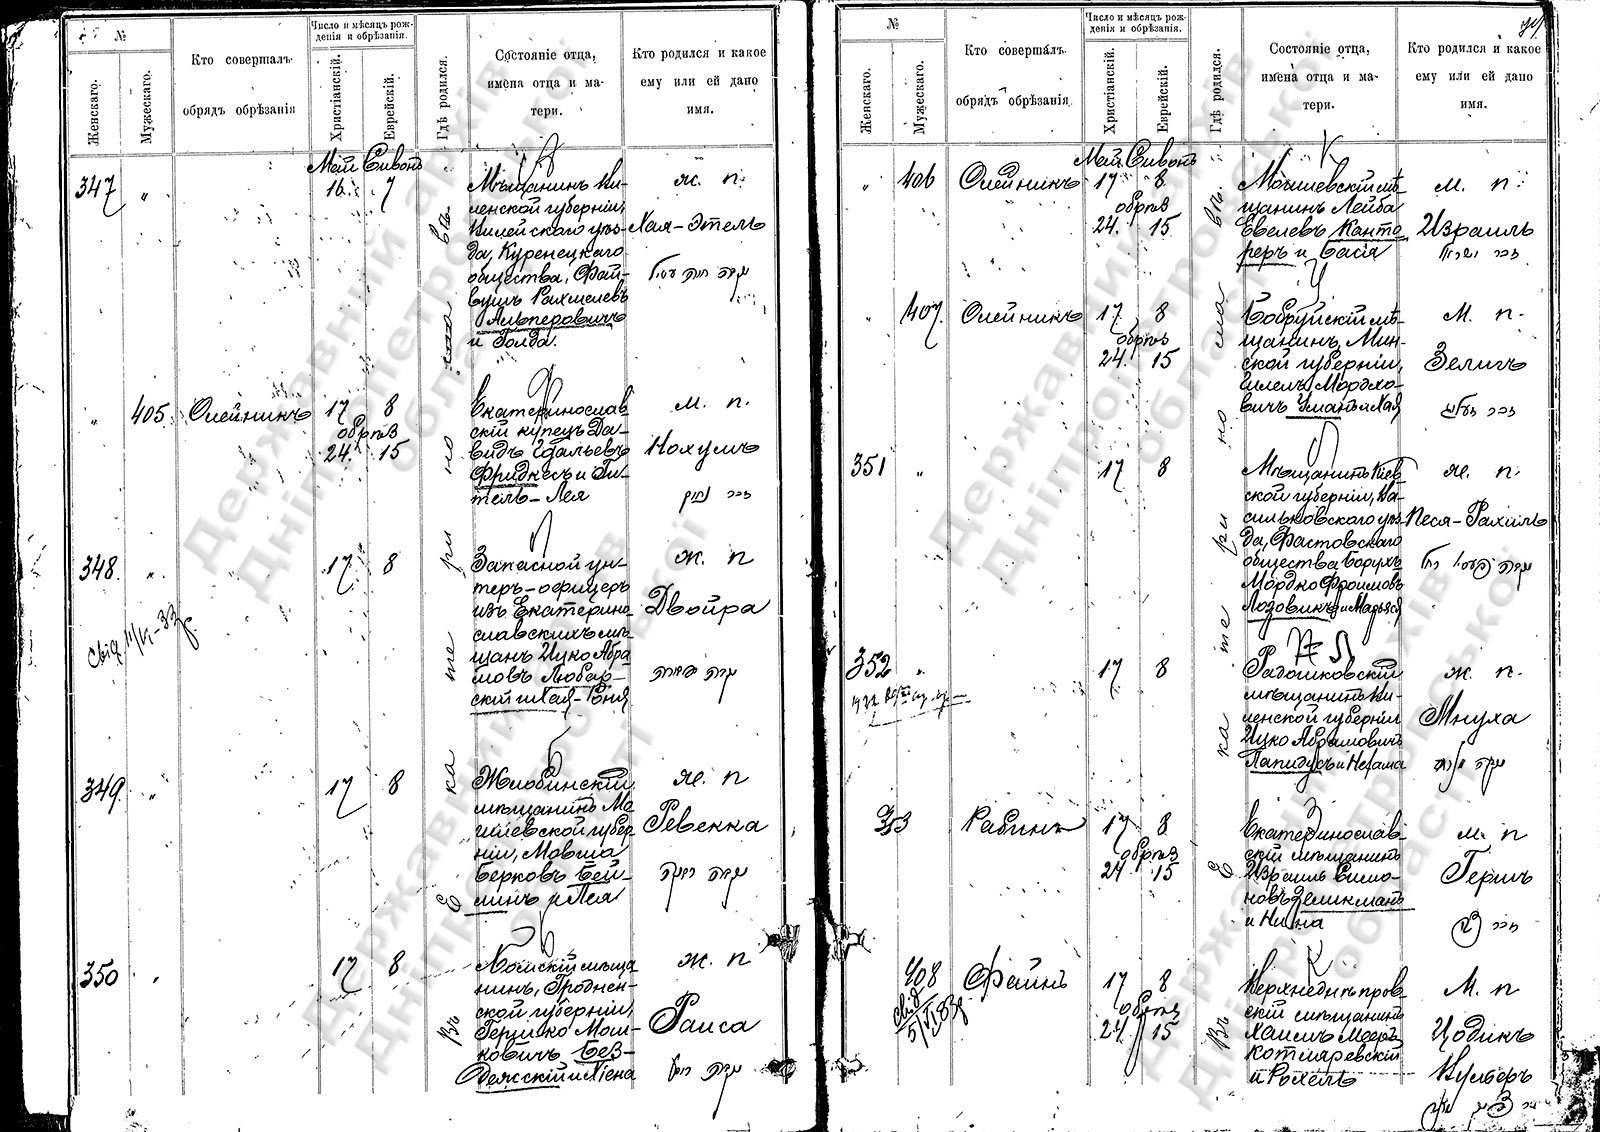 №
Женскаго.
Мужескаго.
Кто совершалъ
обрядъ обрѣзанія
Число и мѣсяцъ рож-
денія и обрѣзанія.
Христіанскій.
Еврейскій.
Гдѣ родился.
Состояніе отца,
имена отца и ма-
тери.
Кто родился и какое
ему или ей дано
имя.
Май Сивонъ
347 „ 16. 7
Мѣщанинъ Ви-
ленской губерніи,
Вилейскаго уѣз-
да, Куренецкаго
общества, Фай-
вушъ Рахмелевъ
Альперовичъ
и Голда.
ж. п.
Хая-Этель
„ 405 Олейникъ 17 8
обрѣз
24. 15
Екатеринослав
скій купецъ Да-
видъ
Фридкесъ и Ги-
тель-Лея
м. п.
Нохумъ
זכר נחום
348. „ 17 8
Запасной ун-
теръ-офицеръ
изъ Екатерино
славскихъ мѣ-
щанъ Ицко Абра
мовъ Любар-
скій и Хая-Роня
ж. п
Двойра
נקבה דווירה
349. „ 17 8
Жлобинскій
мѣщанинъ Мо
гилевской губер
ніи, Мовша
Берковъ Бей-
линъ и Лея
ж. п
Ревекка
נקבה רבקה
350 „ 17 8
мѣща
нинъ, Гроднен-
ской губерніи,
Гершко Мош-
ковичъ Без-
дежскій и
ж. п
Раиса
Въ Екатеринославѣ.
№
Женскаго.
Мужескаго.
Кто совершалъ
обрядъ обрѣзанія
Число и мѣсяцъ рож-
денія и обрѣзанія.
Христіанскій.
Еврейскій.
Гдѣ родился.
Состояніе отца,
имена отца и ма-
тери.
Кто родился и какое
ему или ей дано
имя.
Май Сивонъ
„ 406 Олейникъ 17 8
обрѣз
24. 15
Могилевскій мѣ-
щанинъ Лейба
Евелевъ Канто
реръ и Бася
м. п.
Израиль
זכר ישראל
„ 407. Олейникъ 17. 8
обрѣз
24. 15
Бобруйскій мѣ-
щанинъ, Мин-
ской губерніи,
Мордхо-
вичъ Уманъ и Хая
м. п.
Зеликъ
351 „ 17 8
Мѣщанинъ Кіев
ской губерніи, Ва-
сильковскаго уѣз
да, Фастовскаго
общества Борухъ
Мордко Фроимовъ
Лозовикъ и Марьяся
ж. п.
Песя-Рахиль
352 „ 17 8
Радошковскій
мѣщанинъ Ви-
ленской губерніи
Ицко Абрамовичъ
Лапидусъ и Нехама
ж. п.
Мнуха
353 Рабинъ 17 8
обрѣз
24 15
Екатеринослав-
скій мѣщанинъ
Израиль Симо-
новъ
м. п
Гершъ
408 Фейнъ 17 8
обрѣз
24. 15
Верхнеднѣпров-
скій мѣщанинъ
Хаимъ Мееръ
Котляревскій
и Рохель
м. п
Цодикъ
Въ Екатеринославѣ.
Державний архів
Дніпропетровської
області